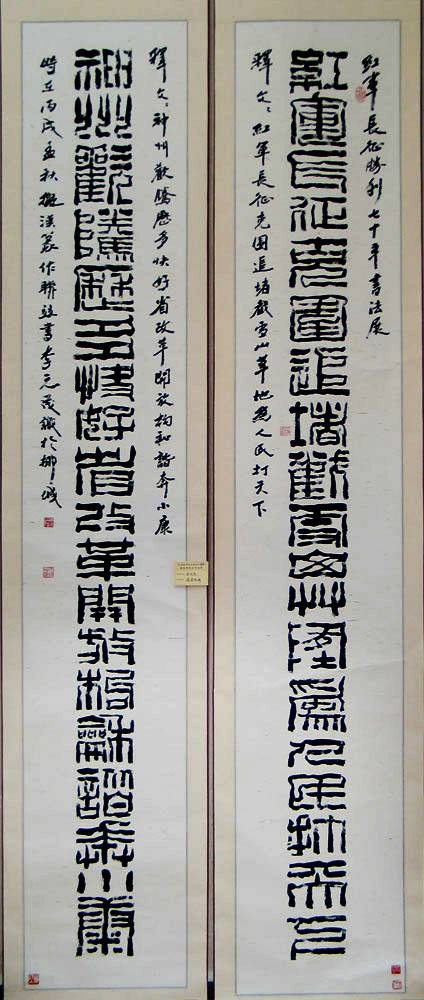 紅軍長征勝利七十年書法展
紅軍長征克圍追堵截雪山草地為人民打天下
釋文：紅軍長征克圍追堵截雪山草地為人民打天下
釋文：神州歡騰歷多快好省改革開放构和諧奔小康
神州歡騰歷多快好省改革開放构龢諧奔小康
時在丙戌孟秋擬漢篆作聯並書李元茂於柳城